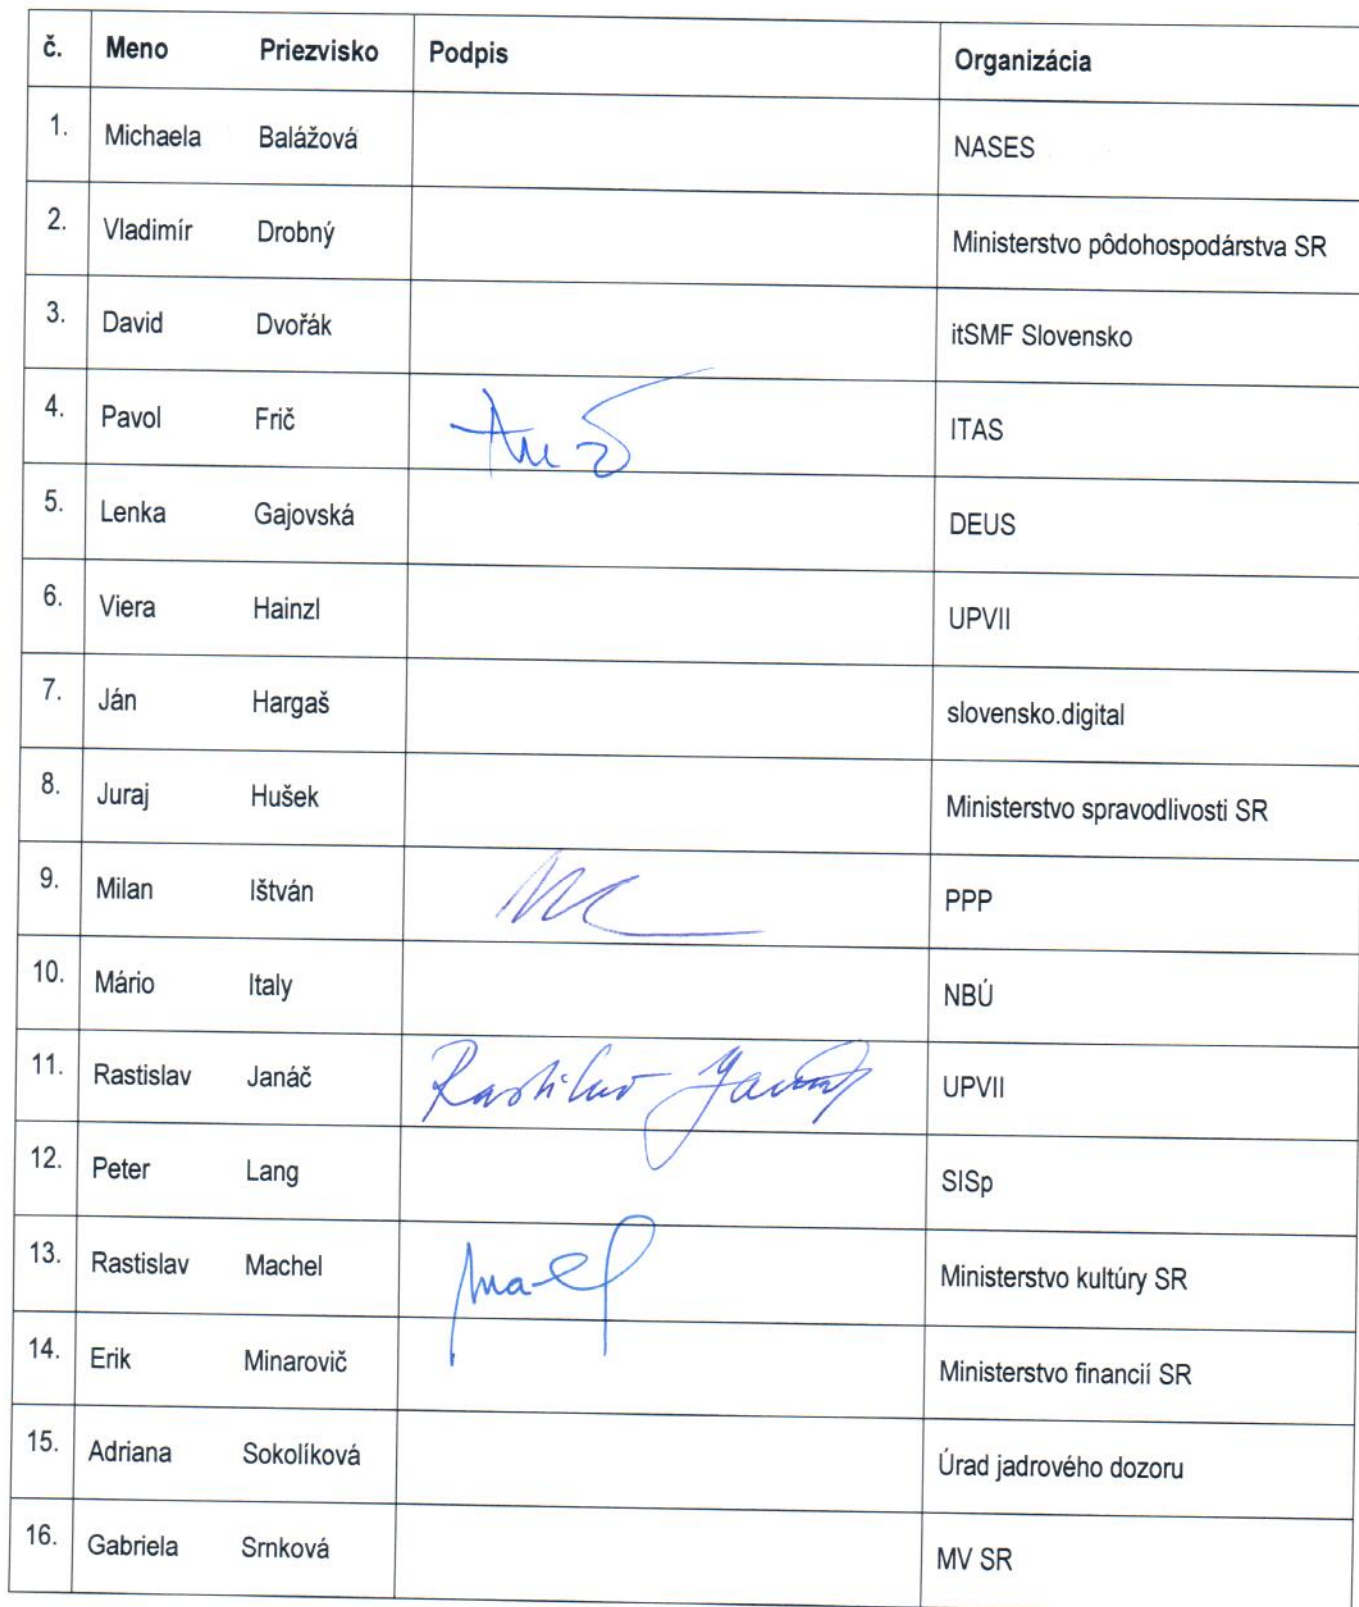 č. Meno Priezvisko Podpis Organizácia
1. Michaela Balážová NASES
2. Vladimír Drobný Ministerstvo pôdohospodárstva SR
3. David Dvořák itSMF Slovensko
4. Pavol Frič ITAS
5. Lenka Gajovská DEUS
6. Viera Hainzl UPVII
7. Ján Hargaš slovensko.digital
8. Juraj Hušek Ministerstvo spravodlivosti SR
9. Milan Ištván PPP
10. Mário Italy NBÚ
11. Rastislav Janáč Rastislav Janáč UPVII
12. Peter Lang SISp
13. Rastislav Machel Ministerstvo kultúry SR
14. Erik Minarovič Ministerstvo financií SR
15. Adriana Sokolíková Úrad jadrového dozoru
16. Gabriela Srnková MV SR